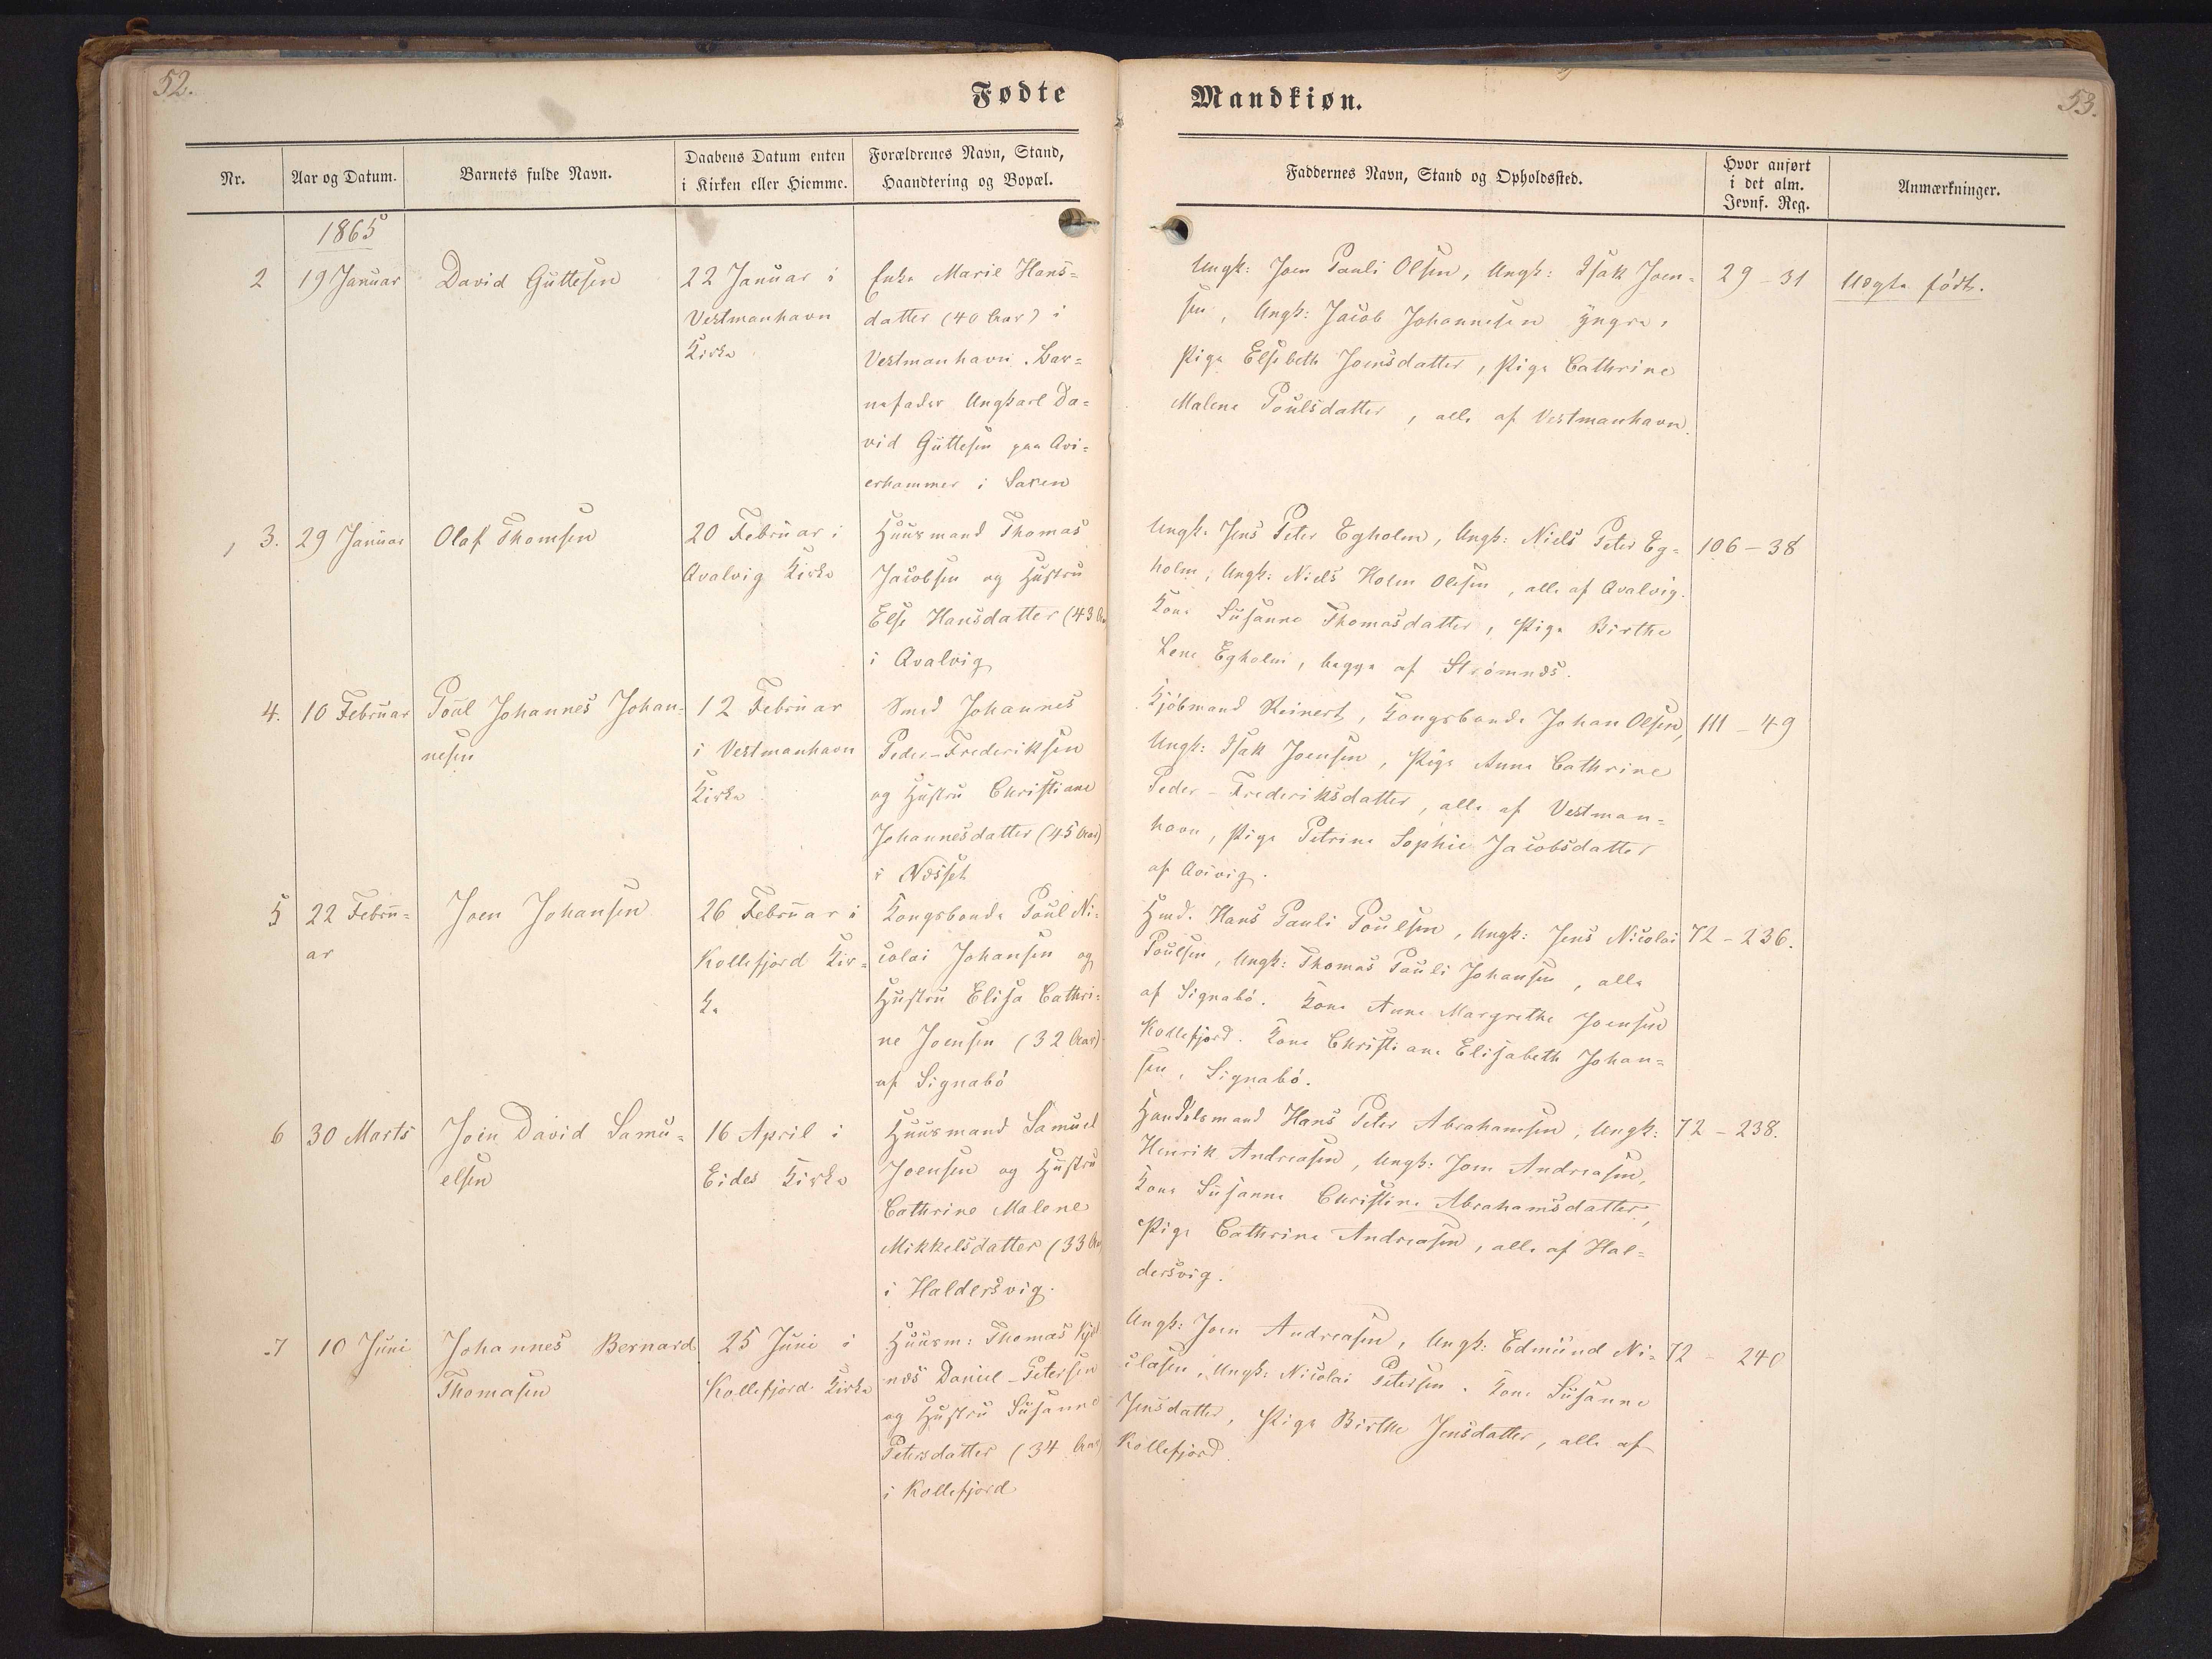 52.
Fødte
Nr.
Aar og Datum.
Barnets fulde Navn.
Daabens Datum enten
i Kirken eller Hiemme.
Forældrenes Navn, Stand,
Haandtering og Bopæl.
1865
2
19 Januar
David Guttesen
22 Januar i
Vestmanhavn
Kirke
Enke Marie Hans-
datter (40 Aar) i
Vestmanhavn. Bar-
nefader Ungkarl Da-
vid Guttesen paa
i
3.
29 Januar
Olaf Thomsen
20 Februar i
Qvalvig Kirke
Huusmand Thomas
Jacobsen og Hustru
Else Hansdatter (43
i Qvalvig
4.
10 Februar
Poul Johannes Johan-
nesen
12 Februar
i Vestmanhavn
Kirke
Smed Johannes
Peder-Frederiksen
og Hustru Christiane
Johannesdatter (45 Aar)
i Næsset
5
22 Febru-
ar
Joen Johansen
26 Februar i
Kollefjord Kir-
ke
Kongsbonde Poul Ni-
colai Johansen og
Hustru Elisa Cathri-
ne Joensen (32 Aar)
af Signabö
6
30 Marts
Joen David Samu-
elsen
16 April i
Eides Kirke
Huusmand Samuel
Joensen og Hustru
Cathrine Malene
Mikkelsdatter (33
i Haldersvig.
7
10 Juni
Johannes Bernard
Thomasen
25 Juni i
Kollefjord Kirke
Huusm: Thomas
næs Daniel-Petersen
og Hustru Susanne
Petersdatter (34 Aar)
i Kollefjord
Mandkiøn.
53.
Faddernes Navn, Stand og Opholdssted.
Hvor anført
i det alm.
Jevnf. Reg.
Anmærkninger.
Ungk: Joen Pauli Olsen, Ungk: Isak Joen-
sen, Ungk: Jacob Johannesen yngre,
Pige Elsebeth Joensdatter, Pige Cathrine
Malene Poulsdatter, alle af Vestmanhavn.
29 - 31
Uægte födt.
Ungk. Jens Peter Egholm, Ungk: Niels Peter Eg-
holm, Ungk: Niels Holm Olesen, alle af Qvalvig.
Kone Susanne Thomasdatter, Pige Birthe
Lene Egholm, begge af Strömnæs.
106 - 38
Kjöbmand Reinert, Kongsbonde Johan Olsen,
Ungk: Isak Joensen, Pige Anna Cathrine
Peder-Frederiksdatter, alle af Vestman-
havn, Pige Petrine Sophie Jacobsdatter
af Qvivig.
111 - 49
Hmd. Hans Pauli Poulsen, Ungk: Jens Nicolai
Poulsen, Ungk: Thomas Pauli Johansen, alle
af Signabö. Kone Anne Margrethe Joensen
Kollefjord. Kone Christiane Elisabeth Johan-
sen, Signabö.
72 - 236.
Handelsmand Hans Peter Abrahamsen, Ungk:
Henrik Andreasen, Ungk: Joen Andreasen,
Kone Susanne Christine Abrahamsdatter,
Pige Cathrine Andreasen, alle af Hal-
dersvig.
72 - 238.
Ungk: Joen Andreasen, Ungk: Edmund Ni-
clasen, Ungk: Nicolai Petersen. Kone Susanne
Jensdatter, Pige Birthe Jensdatter, alle af
Kollefjord.
72 - 240